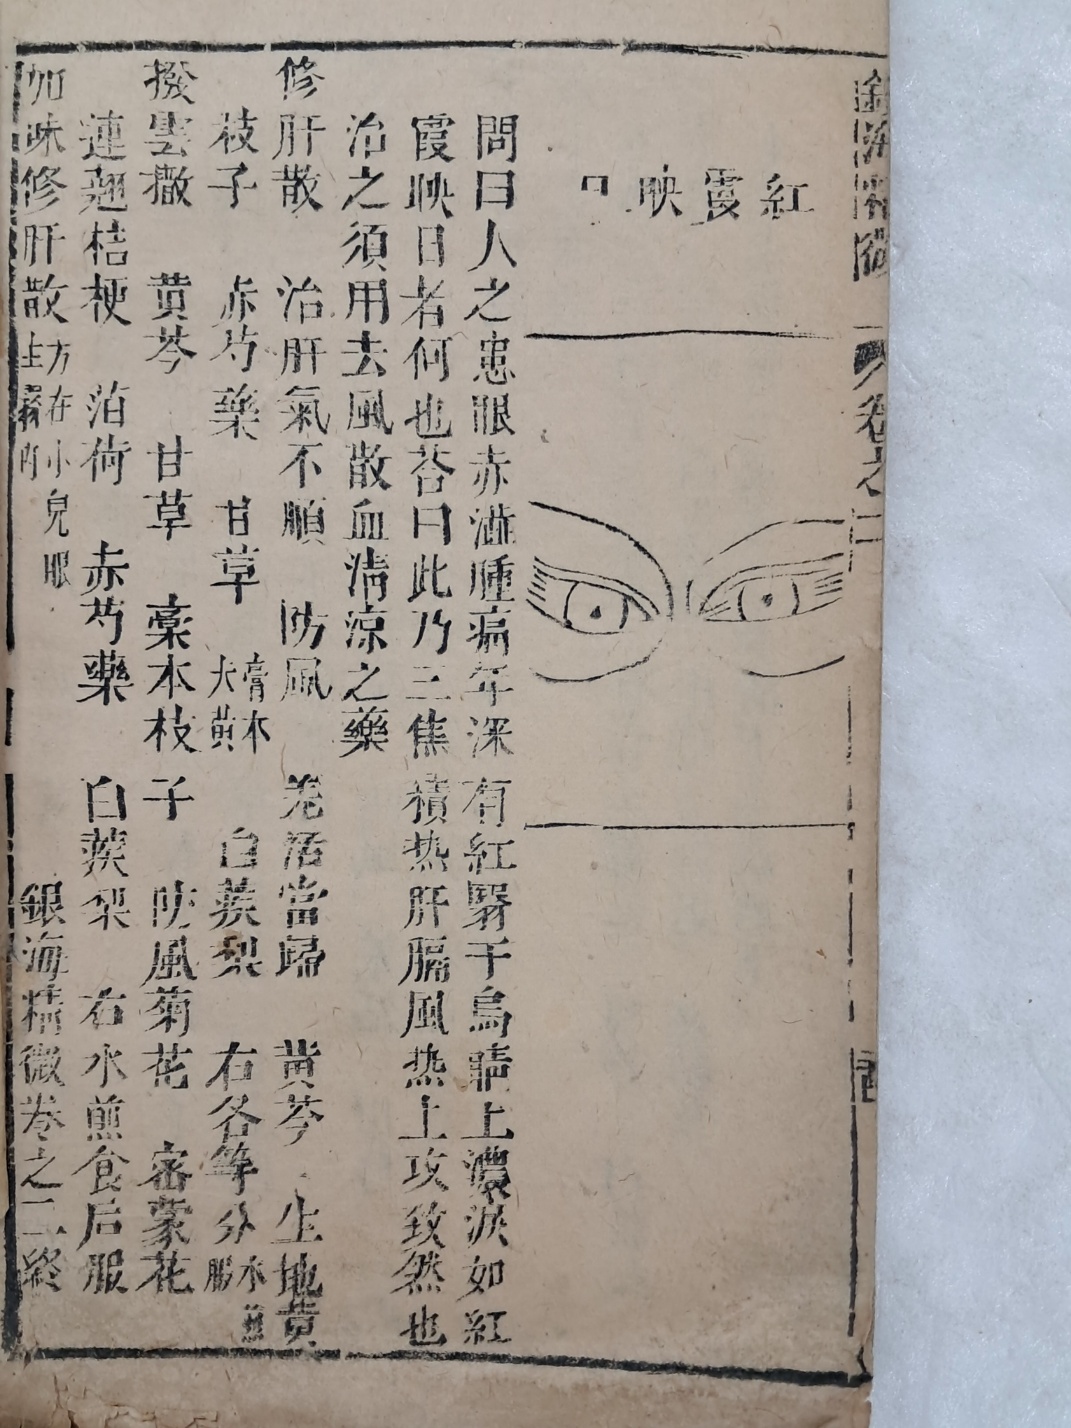 銀海精微 卷之二
紅霞映日
問曰人之患眼赤澁腫痛年深有紅翳于烏睛上濃淚如紅
霞映日者何也荅曰此乃三焦積热肝膈風热上攻致然也
治之須用去風散血清涼之藥
修肝散 治肝氣不順 防風 羌活當歸 黄芩 生地黄
枝子 赤芍藥 甘草 膏本 大黄 白蒺梨 右各等分水煎服
撥雲撒 黄芩 甘草 藁本枝子 防風菊花 密蒙花
連翹桔梗 泊荷 赤芍藥 白蒺梨 右水煎食后服
加味修肝散方在小兒眼生翳内 銀海精微卷之二終